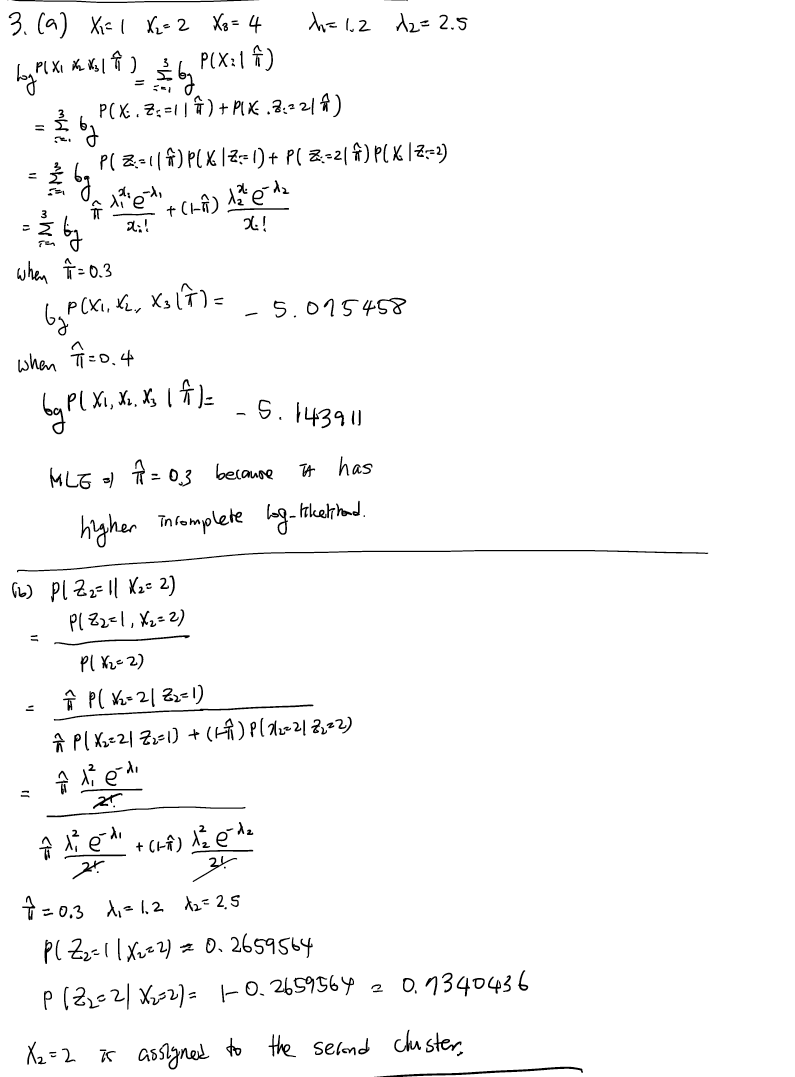 3. (a) X₁=1 X₂=2 X₃=4 λ₁=1.2 λ₂=2.5
log P(X₁ X₂ X₃|π̂) = Σᵢ₌₁³ log P(Xᵢ|π̂)
= Σᵢ₌₁³ log P(Xᵢ, Zᵢ=1|π̂) + P(Xᵢ, Zᵢ=2|π̂)
= Σᵢ₌₁³ log P(Zᵢ=1|π̂)P(Xᵢ|Zᵢ=1) + P(Zᵢ=2|π̂)P(Xᵢ|Zᵢ=2)
= Σᵢ₌₁³ log π̂ λ₁^xᵢ e^-λ₁ / xᵢ! + (1-π̂) λ₂^xᵢ e^-λ₂ / xᵢ!
when π̂=0.3
log P(X₁, X₂, X₃|π̂) = -5.075458
when π̂=0.4
log P(X₁, X₂, X₃|π̂) = -5.143911
MLE ⇒ π̂=0.3 because it has
higher incomplete log-likelihood.
(b) P(Z₂=1|X₂=2)
= P(Z₂=1, X₂=2) / P(X₂=2)
= π̂ P(X₂=2|Z₂=1) / π̂ P(X₂=2|Z₂=1) + (1-π̂) P(X₂=2|Z₂=2)
= π̂ λ₁² e^-λ₁ / 2! / π̂ λ₁² e^-λ₁ / 2! + (1-π̂) λ₂² e^-λ₂ / 2!
π̂=0.3 λ₁=1.2 λ₂=2.5
P(Z₂=1|X₂=2) = 0.2659564
P(Z₂=2|X₂=2) = 1-0.2659564 = 0.7340436
X₂=2 is assigned to the second cluster.